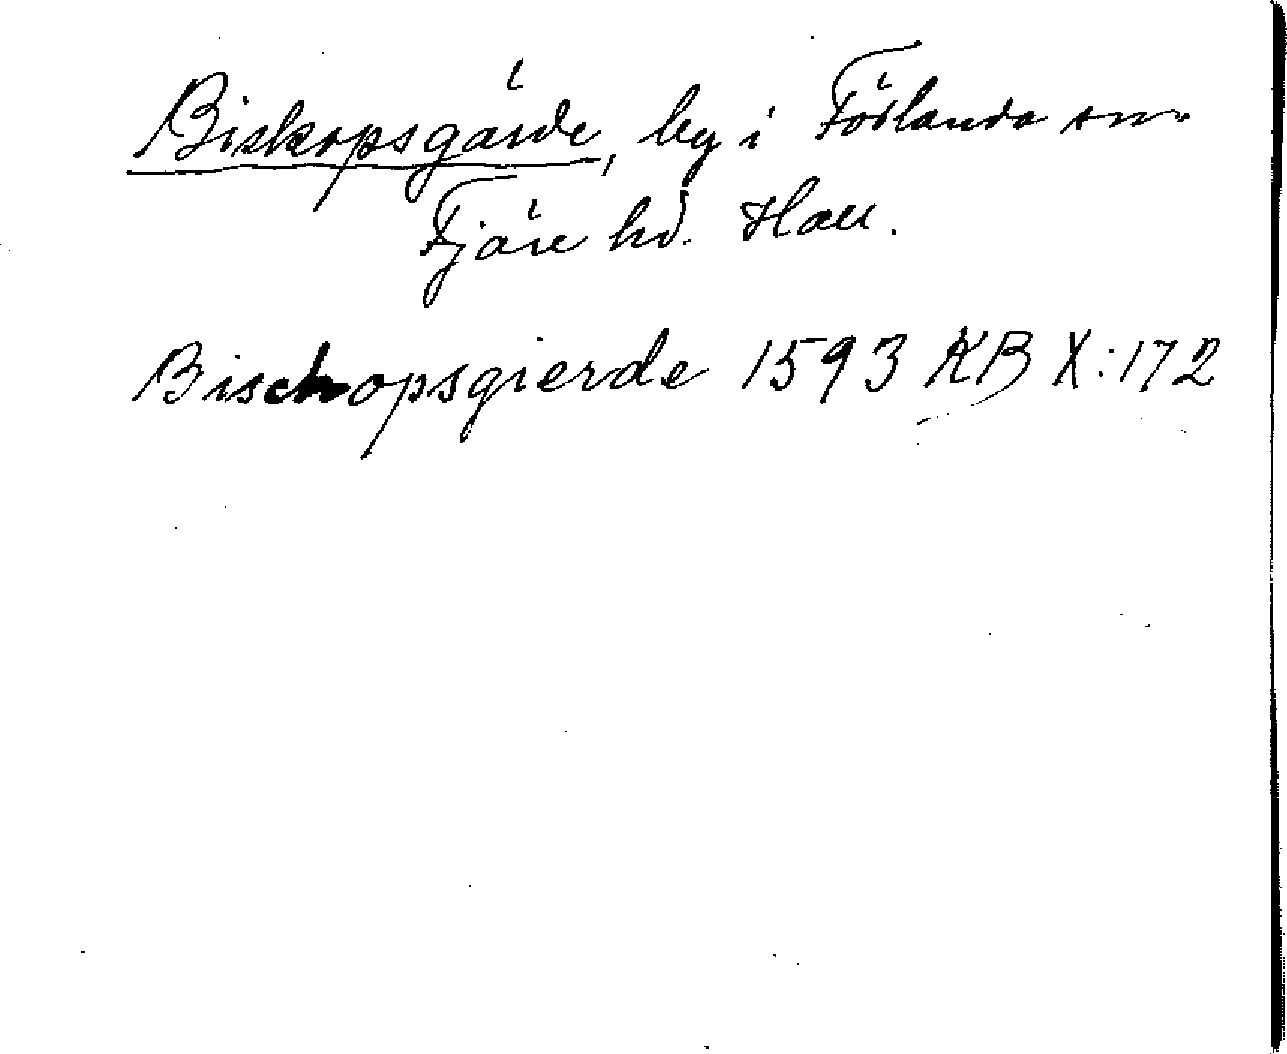 Biskopsgärde, by i Förlanda sn.
Fjäre hd. Hall.
Bischopsgierde 1593 KB X:172